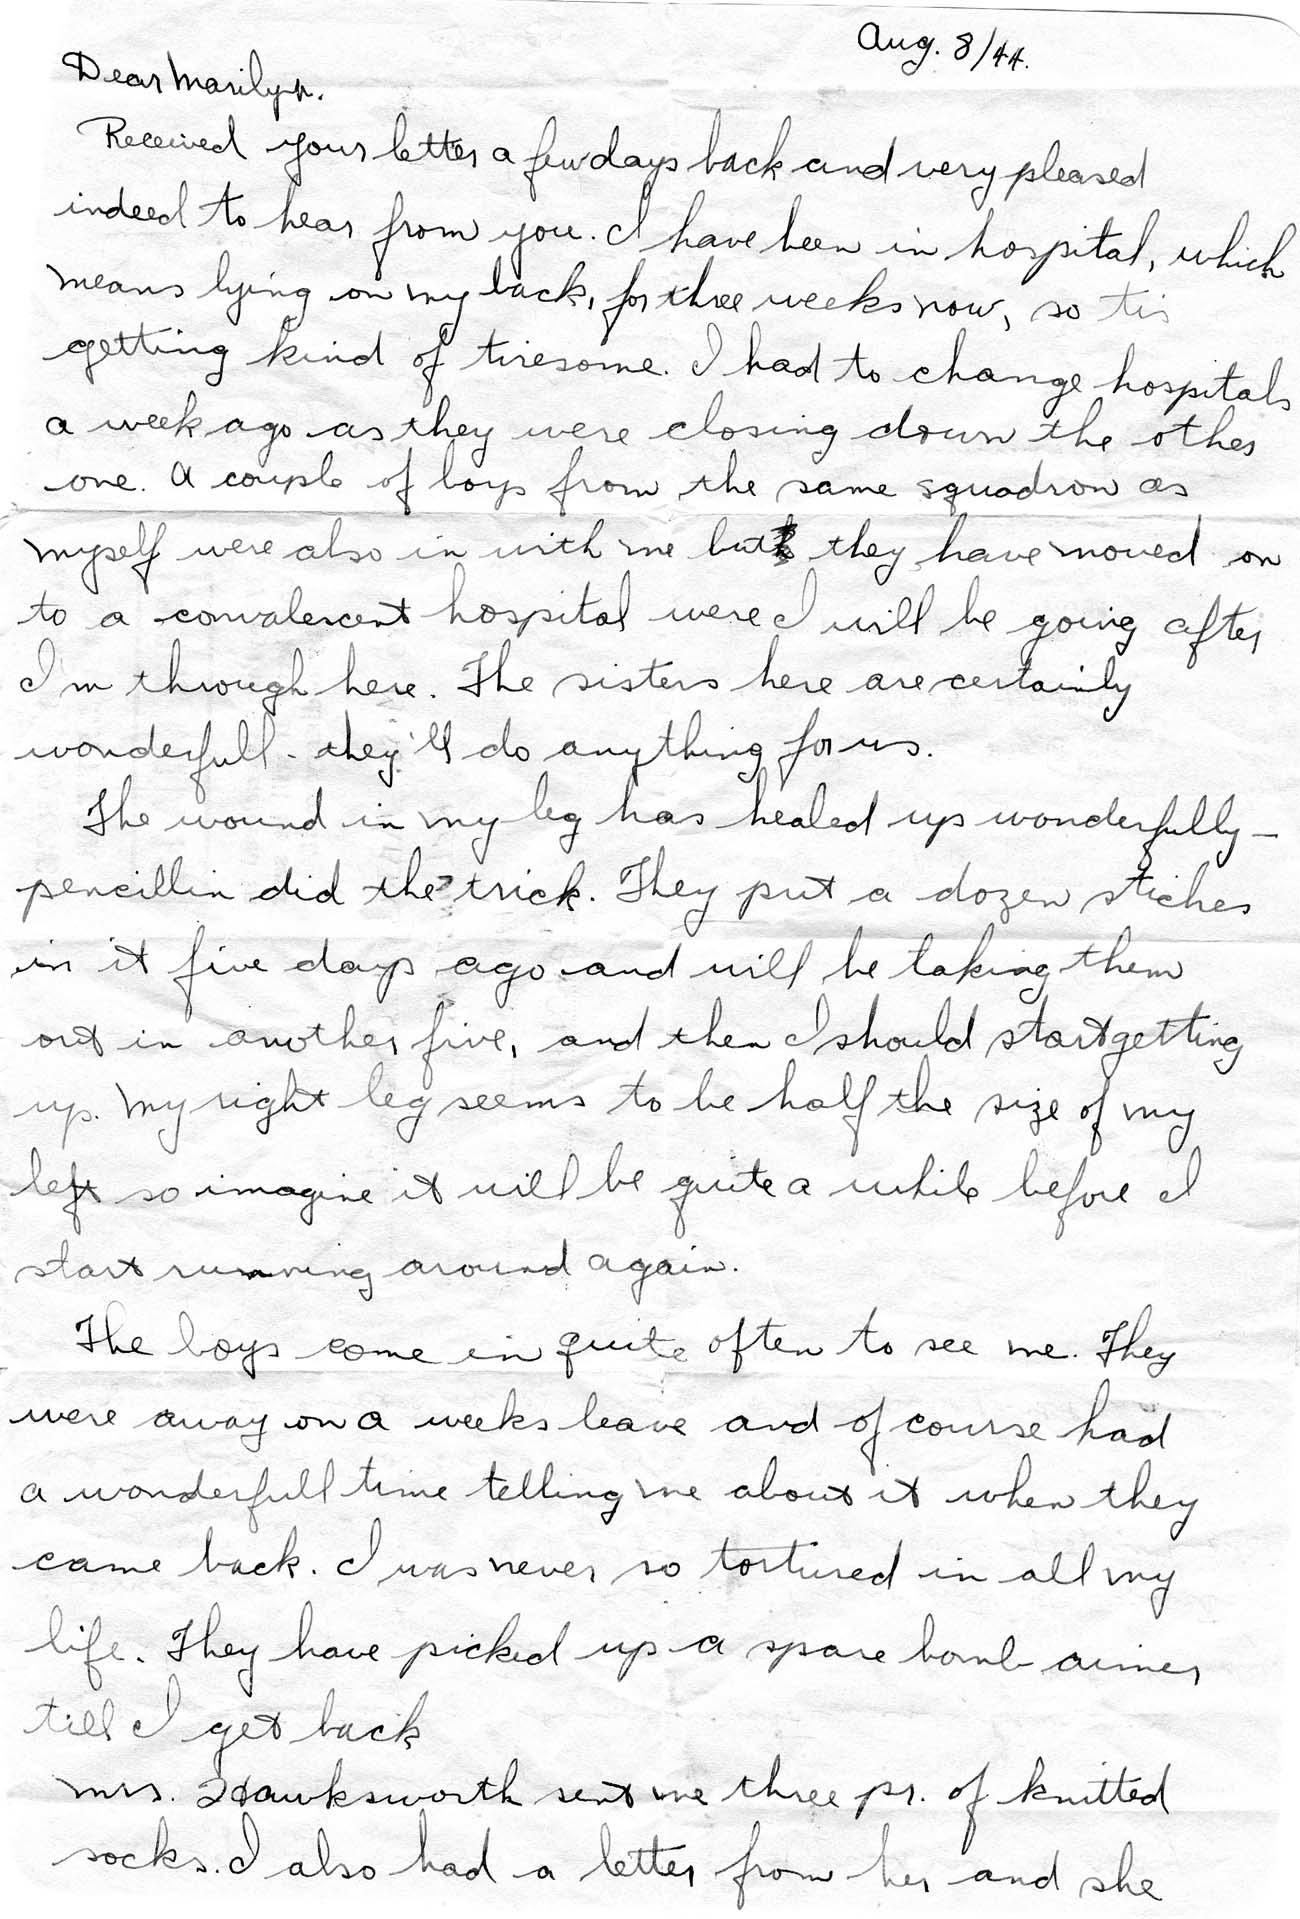 Aug. 8/44.
Dear Marilyn.
Received your letter a few days back and very pleased
indeed to hear from you. I have been in hospital, which
means lying on my back, for three weeks now, so tis
getting kind of tiresome. I had to change hospitals
a week ago as they were closing down the other
one. A couple of boys from the same squadron as
myself were also in with me but they have moved on
to a convalescent hospital were I will be going after
I'm through here. The sisters here are certainly
wonderfull - they'll do anything for us.
The wound in my leg has healed up wonderfully -
pencillin did the trick. They put a dozen stiches
in it five days ago and will be taking them
out in another five, and then I should start getting
up. My right leg seems to be half the size of my
left so imagine it will be quite a while before I
start running around again.
The boys come in quite often to see me. They
were away on a weeks leave and of course had
a wonderfull time telling me about it when they
came back. I was never so tortured in all my
life. They have picked up a spare bomb-aimer
till I get back
Mrs. Hawksworth sent me three pr. of knitted
socks. I also had a letter from her and she